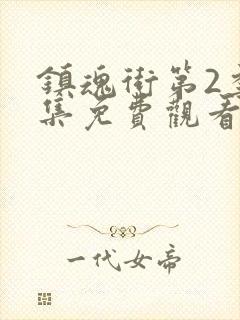 鎮魂街第2季
集免費觀看
一代女帝